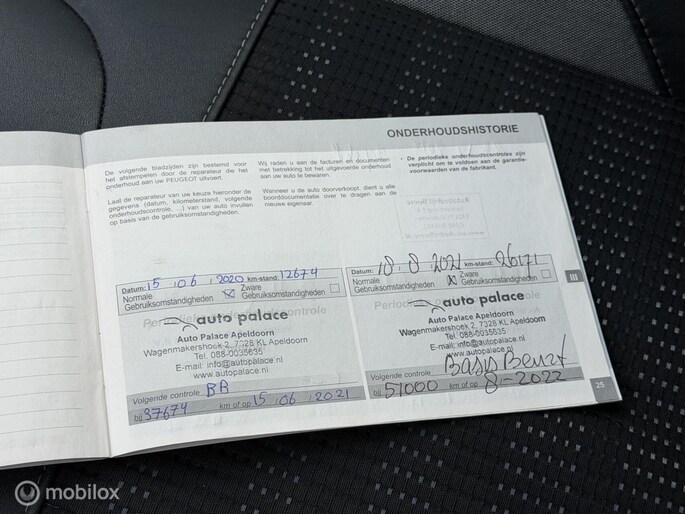 ONDERHOUDSHISTORIE
De volgende bladzijden zijn bestemd voor
het afstempelen door de reparateur die het
onderhoud aan uw PEUGEOT uitvoert.
Laat de reparateur van uw keuze hieronder de
gegevens (datum, kilometerstand, volgende
onderhoudscontrole, ...) van uw auto invullen
op basis van de gebruiksomstandigheden.
Wij raden u aan de facturen en documenten
met betrekking tot het uitgevoerde onderhoud
aan uw auto te bewaren.
Wanneer u de auto doorverkoopt, dient u alle
boorddocumentatie over te dragen aan de
nieuwe eigenaar.
• De periodieke onderhoudscontroles zijn
verplicht om te voldoen aan de garantie-
voorwaarden van de fabrikant.
Datum: 15 / 06 / 2020 km-stand: 12674
Normale Gebruiksomstandigheden
Zware Gebruiksomstandigheden
auto palace
Auto Palace Apeldoorn
Wagenmakershoek 2, 7328 KL Apeldoorn
Tel. 088-0035635
E-mail: info@autopalace.nl
www.autopalace.nl
Volgende controle BA
bij 37674 km of op 15 / 06 / 2021
Datum: 18 / 8 / 2021 km-stand: 26171
Normale Gebruiksomstandigheden
Zware Gebruiksomstandigheden
auto palace
Auto Palace Apeldoorn
Wagenmakershoek 2, 7328 KL Apeldoorn
Tel. 088-0035635
E-mail: info@autopalace.nl
www.autopalace.nl
Volgende controle Basis Beurt
bij 51000 km of op 8-2022
III
25
mobilox